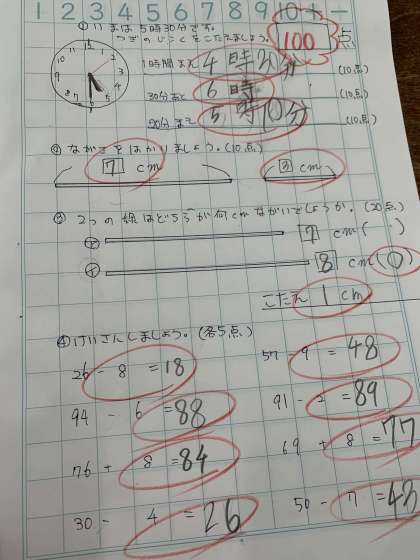 1 2 3 4 5 6 7 8 9 10 + -
① いまは 5時30分です。
つぎの じこくを こたえましょう。
100点
1時間まえ 4時30分 (10点)
30分あと 6時 (10点)
20分まえ 5時10分 (10点)
② ながさを はかりましょう。(10点)
7 cm 3 cm
③ 2つの 線は どちらが 何cm ながいでしょうか。(20点)
7 cm ( )
8 cm (○)
こたえ 1 cm
④ けいさんしましょう。(各5点)
26 - 8 = 18 57 - 9 = 48
94 - 6 = 88 91 - 2 = 89
76 + 8 = 84 69 + 8 = 77
30 - 4 = 26 50 - 7 = 43